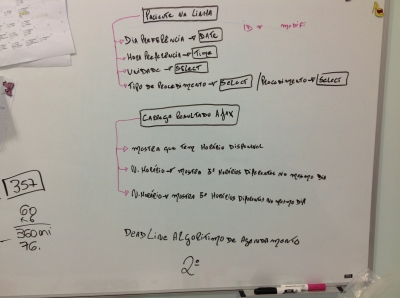 PACIENTE NA LINHA
ID → MODIFI
DIA PREFERÊNCIA → DATE
HORA PREFERÊNCIA → TIME
UNIDADE → SELECT
TIPO DE PROCEDIMENTO → SELECT / PROCEDIMENTO → SELECT
CARREGA RESULTADO AJAX
MOSTRA QUE TEM HORÁRIO DISPONÍVEL
N. HORÁRIO → MOSTRA 3º HORÁRIOS DIFERENTES NO MESMO DIA
N. HORÁRIO → MOSTRA 5º HORÁRIOS DIFERENTES NO MESMO DIA
357
60
360mi
76.
DEADLINE ALGORITIMO DE AGENDAMENTO
2º